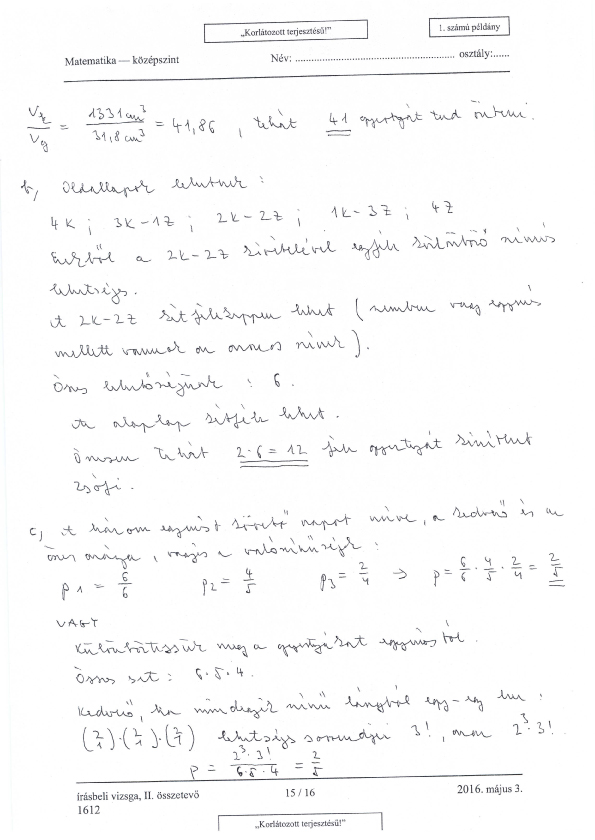 „Korlátozott terjesztésű!”
1. számú példány
Matematika — középszint Név: ........................................................... osztály:......
Vk/Vg = 1331 cm³/31,8 cm³ = 41,86 , tehát 41 gyertyát tud önteni.
b, Oldallapok lehetnek :
4K ; 3K-1Z ; 2K-2Z ; 1K-3Z ; 4Z
Ezekből a 2K-2Z kivételével egyféle különböző színezés
lehetséges.
A 2K-2Z kétféleképpen lehet ( szemben vagy egymás
mellett vannak az azonos színek ).
Összes lehetőségünk : 6 .
Az alaplap kétféle lehet .
Összesen tehát 2·6 = 12 féle gyertyát színezhet
Zsófi .
c, A három egymást követő napot nézve, a kedvező és az
összes aránya , vagyis a valószínűségek :
p1 = 6/6 p2 = 4/5 p3 = 2/4 → p = 6/6 · 4/5 · 2/4 = 2/5
VAGY
Különböztessük meg a gyertyákat egymástól .
Összes eset : 6·5·4 .
Kedvező, ha mindegyik színű lángból egy-egy
(2 1)·(2 1)·(2 1) lehetséges sorrendjei 3! , azaz 2³·3!
p = 2³·3!/6·5·4 = 2/5
írásbeli vizsga, II. összetevő 15 / 16 2016. május 3.
1612
„Korlátozott terjesztésű!”